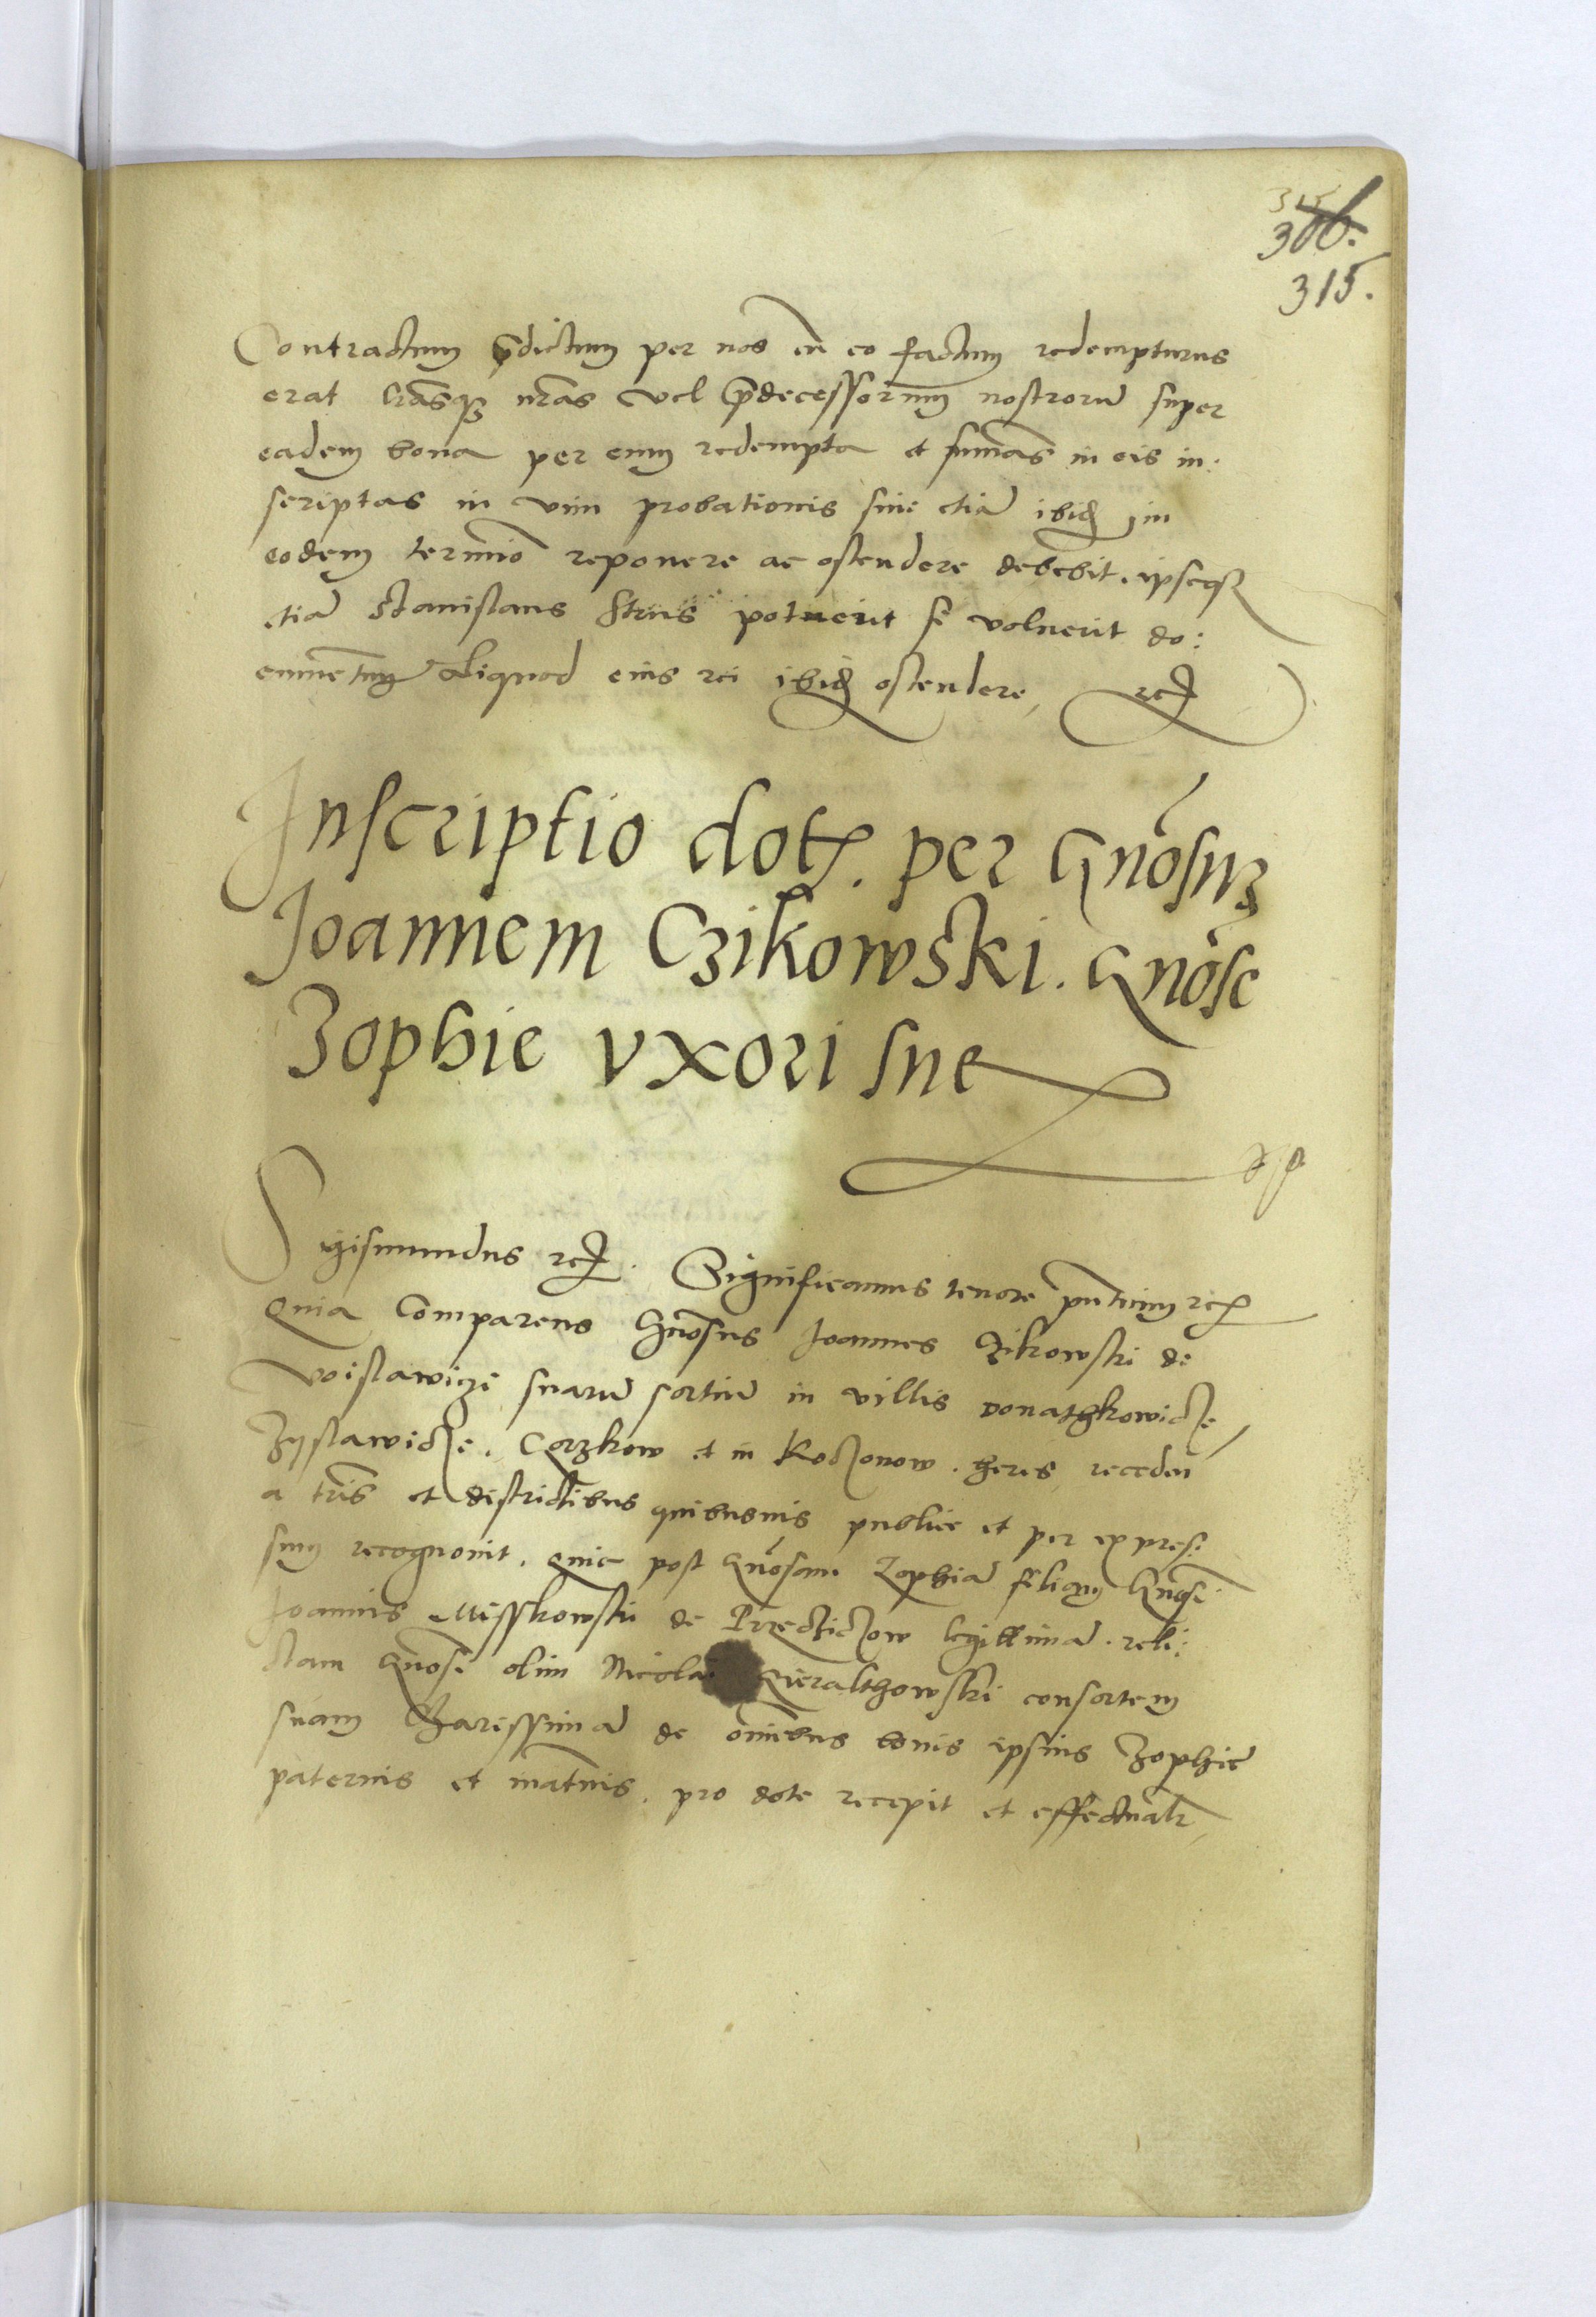 315
306.
315.
Contractum p̄dictum per nos cū eo factum redempturus
erat Lr̄asq₃ nr̄as vel p̄decessorum nostrorū super
eadem bona per eum redempta et sum̄as in eis in:
scriptas in vim probationis sine etiā ibid̄ in
eodem termīo reponere ac ostendere debebit. ipseq₃
etiā Stanislaus Strus potuerit se voluerit do:
cumētum aliquod eius rei ibid̄ ostendere, etc̄
Inscriptio dot̄. per Gn̄osum
Joannem Czikowski. Gn̄ose
Zophie vxori sue
Sigismundus etc̄. Significamus tenore pn̄tium etc̄
Quia Comparens Gn̄osus Joannes Czikowski de
Voislawicze suarū sortiū in villis Donathkowicze
Zyslawicze. Corzkow et in Koczonow. heres receden̄
a tr̄is et districtibus quibusuis publice et per expres:
sum recognouit. Quia post Gn̄osam Zophiā filiam Gn̄osi
Joannis Misskowski de Przecziczow legittimā. reli:
ctam Gn̄osi olim Nicolai Gieralthowski consortem
suam Charissimā de om̄ibus bonis ipsius Zophie
paternis et mat̄nis. pro dote recepit et effectualr̄